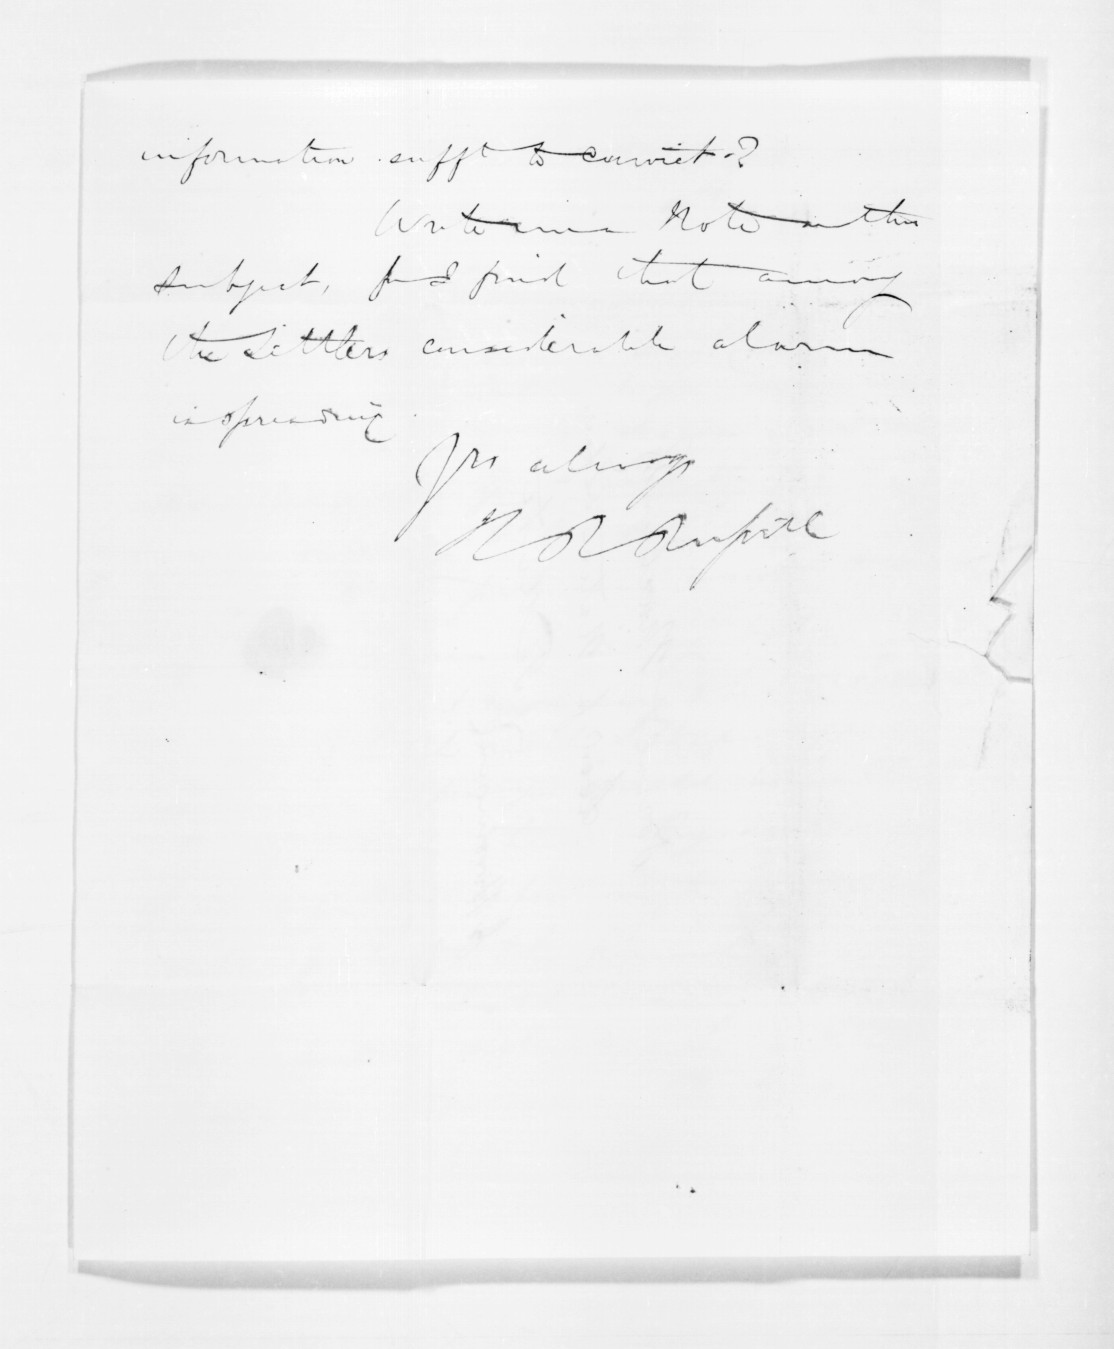 information sufft to convict?
Write me a Note on this
subject, for I find that among
the Settlers considerable alarm
is spreading
Yrs always
H R Russell